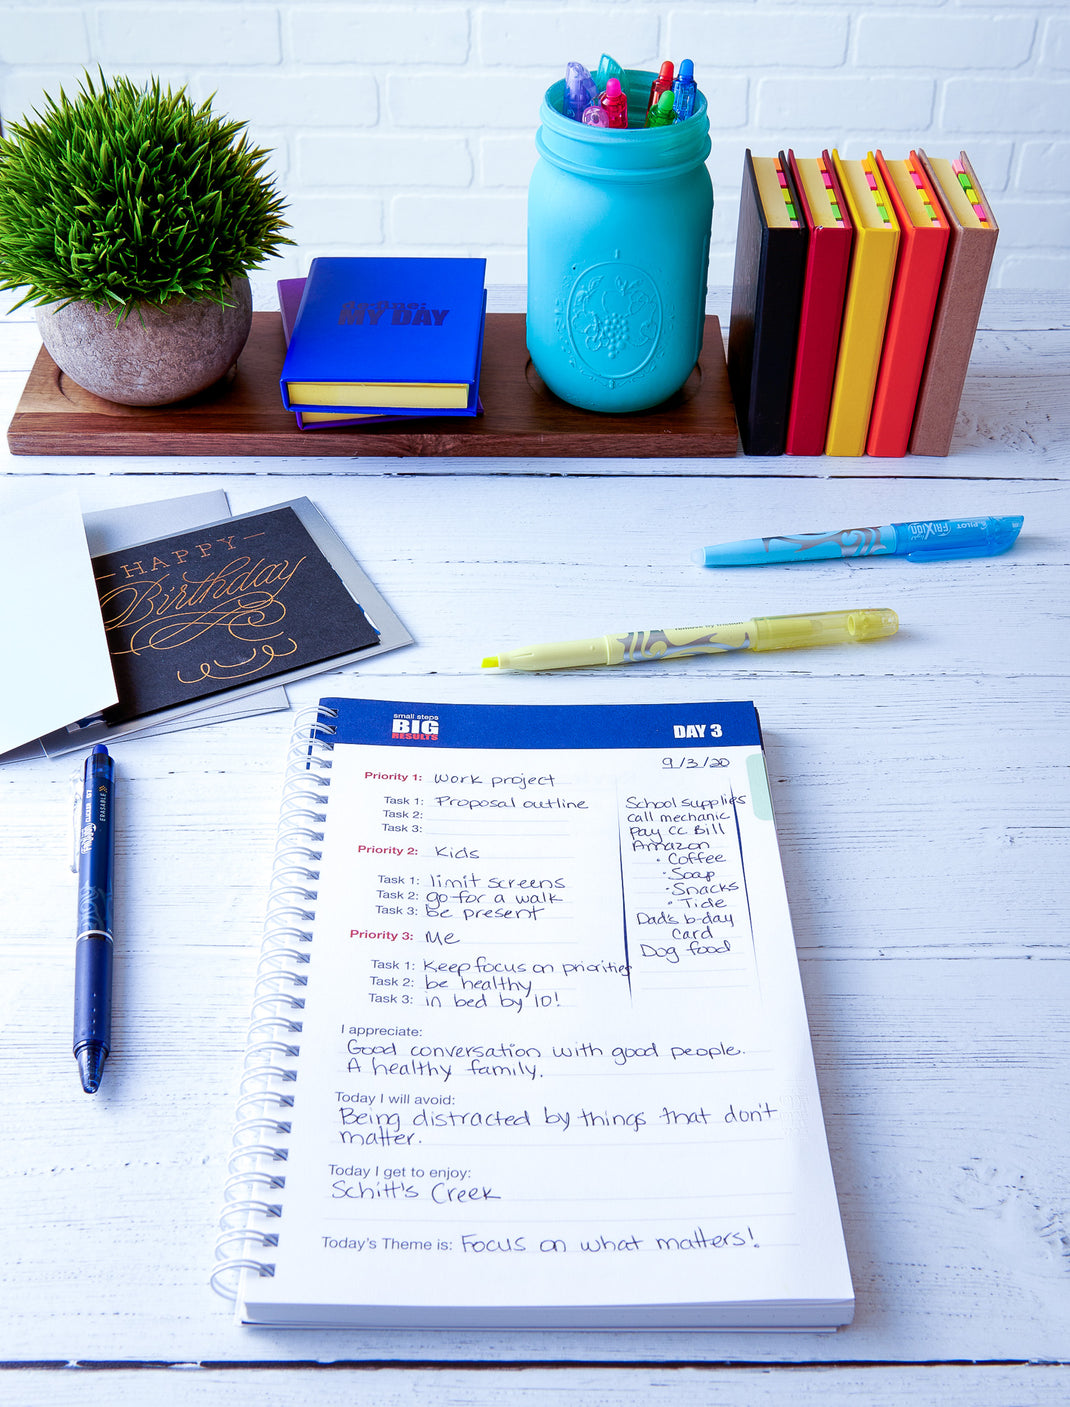 MY DAY
FRIXION
PILOT
HAPPY
Birthday
remove by friction
FRIXION
CLICKER 07
ERASABLE
small steps
BIG
RESULTS
DAY 3
9/3/20
Priority 1: Work project
Task 1: Proposal outline
Task 2:
Task 3:
Priority 2: Kids
Task 1: limit screens
Task 2: go for a walk
Task 3: be present
Priority 3: Me
Task 1: Keep focus on priorities
Task 2: be healthy
Task 3: in bed by 10!
School supplies
call mechanic
Pay CC Bill
Amazon
• Coffee
• Soap
• Snacks
• Tide
Dad's b-day
card
Dog food
I appreciate:
Good conversation with good people.
A healthy family.
Today I will avoid:
Being distracted by things that don't
matter.
Today I get to enjoy:
Schitt's Creek
Today's Theme is: Focus on what matters!